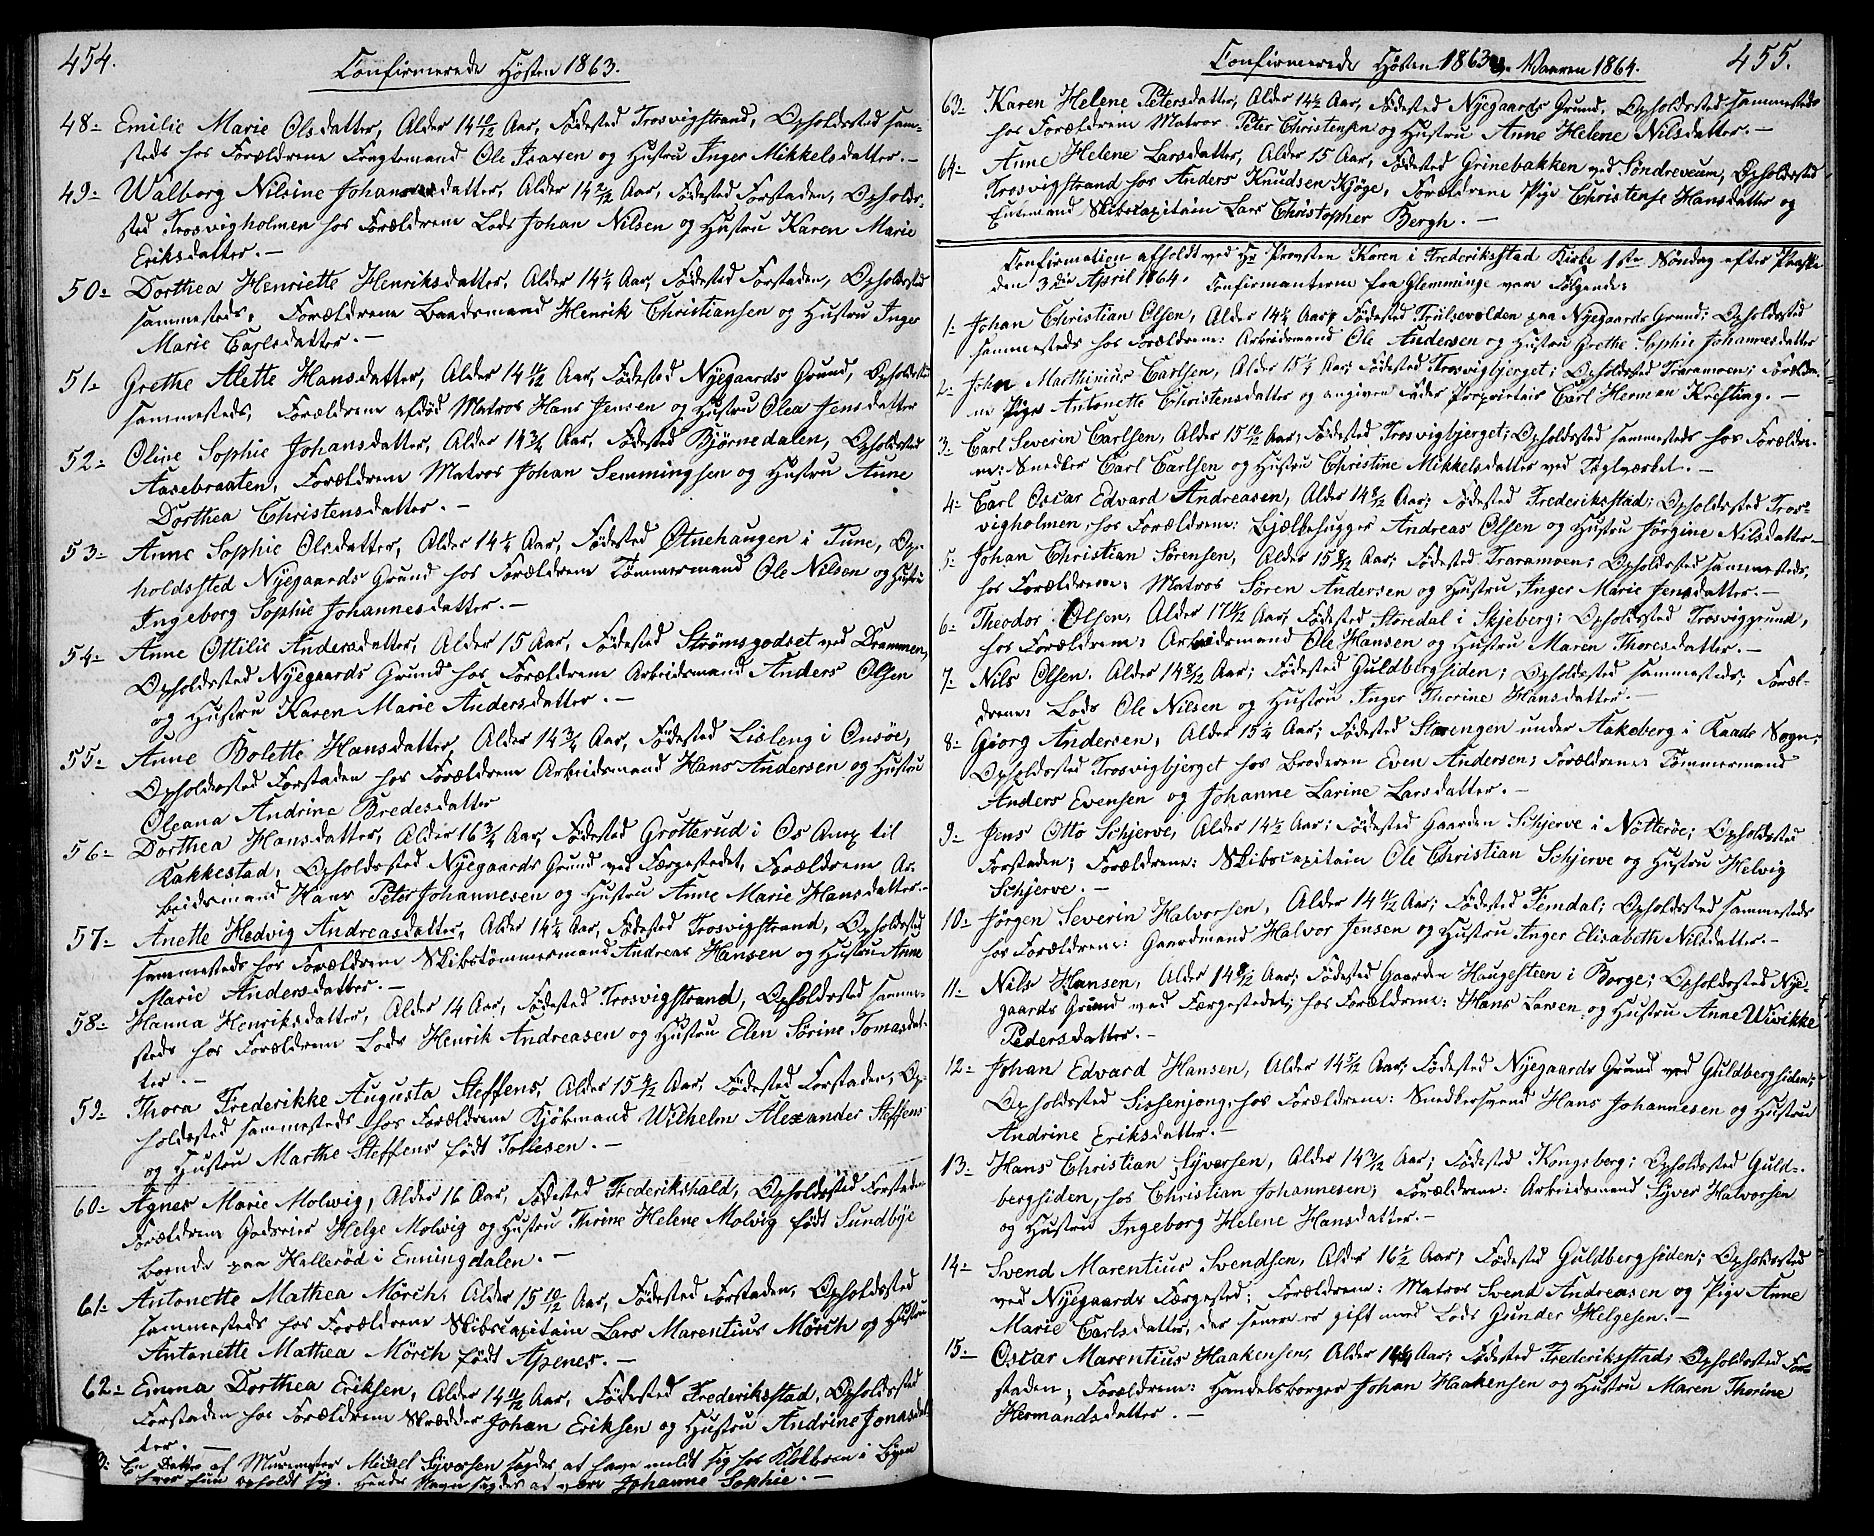 454.
Confirmerede Høsten 1863.
48- Emilie Marie Olsdatter, Alder 14 10/12 Aar, Fødested Trosvigstrand, Opholdssted sam-
steds hos Forældrene Fragtemand Ole Isaxen og Hustru Inger Mikkelsdatter.-
49- Walborg Nilsine Johannesdatter, Alder 14 2/12 Aar, Fødested Forstaden, Opholds-
sted Trosvigholmen hos Forældrene Lods Johan Nilsen og Hustru Karen Marie
Eriksdatter.-
50- Dorthea Henriette Henriksdatter, Alder 14 1/4 Aar, Fødested Forstaden, Opholdssted
sammesteds, Forældrene Baadsmand Henrik Christiansen og Hustru Inger
Marie Carlsdatter.-
51- Grethe Alette Hansdatter, Alder 14 11/12 Aar, Fødested Nyegaards Grund, Opholdssted
sammesteds, Forældrene afdød Matros Hans Jensen og Hustru Olea Jensdatter
52- Oline Sophie Johansdatter, Alder 14 3/4 Aar, Fødested Bjørnedalen, Opholdssted
Aasebraaten, Forældrene Matros Johan Semmingsen og Hustru Anne
Dorthea Christensdatter.-
53- Anne Sophie Olsdatter, Alder 14 1/4 Aar, Fødested Øtnehaugen i Tune, Op-
holdssted Nyegaards Grund hos Forældrene Tømmermand Ole Nilsen og Hustru
Ingeborg Sophie Johannesdatter.-
54- Anne Ottilie Andersdatter, Alder 15 Aar, Fødested Strømsgodset ved Drammen,
Opholdssted Nyegaards Grund hos Forældrene Arbeidsmand Anders Olsen
og Hustru Karen Marie Andersdatter.-
55- Anne Bolette Hansdatter, Alder 14 3/4 Aar, Fødested Lisleng i Onsøe,
Opholdssted Forstaden hos Forældrene Arbeidsmand Hans Andersen og Hustru
Oleana Andrine Bredesdatter
56- Dorthea Hansdatter, Alder 16 3/4 Aar, Fødested Grotterud i Os Anex til
Rakkestad, Opholdssted Nyegaards Grund ved Færgestedet, Forældrene Ar-
beidsmand Hans Peter Johannesen og Hustru Anne Marie Hansdatter.-
57- Anette Hedvig Andreasdatter, Alder 14 1/4 Aar, Fødested Trosvigstrand, Opholdssted
sammesteds hos Forældrene Skibstømmermand Andreas Hansen og Hustru Anne
Marie Andersdatter.-
58- Hanna Henriksdatter, Alder 14 Aar, Fødested Trosvigstrand, Opholdssted samme-
steds hos Forældrene Lods Henrik Andreasen og Hustru Elen Sørine Tomasdat-
ter.-
59- Thora Frederikke Augusta Steffens, Alder 15 9/12 Aar, Fødested Forstaden, Op-
holdssted sammesteds hos Forældrene Kjøbmand Wilhelm Alexander Steffens
og Hustru Marthe Steffens født Tollesen.-
60- Agnes Marie Molwig, Alder 16 Aar, Fødested Frederikshald, Opholdssted Forstaden
Forældrene Godseier Helge Molwig og Hustru Thrine Helene Molvig født Sundbye
boende paa Hallerød i Enningdalen.-
61- Antonette Mathea Mørch, Alder 15 10/12 Aar, Fødested Forstaden, Opholdssted
sammesteds hos Forældrene Skibscapitain Lars Marentius Mørch og Hustru
Antonette Mathea Mørch født Apenes.-
62- Emma Dorthea Eriksen, Alder 14 11/12 Aar, Fødested Frederiksstad, Opholdssted
Forstaden hos Forældrene Skrædder Johan Eriksen og Hustru Andrine Jonasdat-
ter.-
En Datter af Murmester Mickel Syversen sagdes at have meldt sig hos Klokkeren i Byen
hvor hun opholdt sig. Hendes Navn sagdes at være Johanne Sophie.-
455.
Confirmerede Høsten 1863 og Vaaren 1864.
63- Karen Helene Petersdatter, Alder 14 1/2 Aar, Fødested Nyegaards Grund, Opholdssted sammesteds
hos Forældrene Matros Peter Christensen og Hustru Anne Helene Nilsdatter.-
64- Anne Helene Larsdatter, Alder 15 Aar, Fødested Grinebakken ved Søndreveum, Opholdssted
Trosvigstrand hos Anders Knudsen Kjøge, Forældrene Pige Christense Hansdatter og
Enkemand Skibscapitain Lars Christopher Bergh.-
Confirmation afholdt ved Hr Provsten Karen i Frederiksstad Kirke 1ste Søndag efter Paaske
den 3die April 1864. Confirmanterne fra Glemminge vare Følgende:
1- Johan Christian Olsen, Alder 14 1/4 Aar; Fødested Trulsevolden paa Nyegaards Grund; Opholdssted
sammesteds hos Forældrene: Arbeidsmand Ole Andersen og Hustru Grethe Sophie Johannesdatter
2- Johan Marthinius Carlsen, Alder 15 1/4 Aar; Fødested Trosvigbjerget; Opholdssted Traramoen; Forældre-
ne Pige Antonette Christensdatter og angiven Fader Proprietair Carl Herman Krefting.-
3- Carl Severin Carlsen, Alder 15 10/12 Aar; Fødested Trosvigbjerget; Opholdssted sammesteds hos Forældre-
ne: Snedker Carl Carlsen og Hustru Christine Mikkelsdatter ved Teglværket.-
4- Carl Oscar Edvard Andreasen, Alder 14 8/12 Aar; Fødested Frederiksstad; Opholdssted Tros-
vigholmen, hos Forældrene: Bjælkehugger Andreas Olsen og Hustru Jørgine Nilsdatter-
5- Johan Christian Sørensen, Alder 15 8/12 Aar; Fødested Traramoen; Opholdssted sammesteds,
hos Forældrene: Matros Søren Andersen og Hustru Inger Marie Jensdatter.-
6- Theodor Olsen, Alder 17 11/12 Aar; Fødested Storedal i Skjeberg; Opholdssted Trosviggrund,
hos Forældrene: Arbeidsmand Ole Hansen og Hustru Maren Thoresdatter.-
7- Nils Olsen, Alder 14 8/12 Aar; Fødested Guldbergsiden; Opholdssted sammesteds; Foræl-
drene: Lods Ole Nilsen og Hustru Inger Thorine Hansdatter.-
8- Georg Andersen, Alder 15 1/4 Aar; Fødested Storengen under Aakeberg i Raade Sogn;
Opholdssted Trosvigbjerget hos Broderen Even Andersen; Forældrene: Tømmermand
Anders Evensen og Johanne Larine Larsdatter.-
9- Jens Otto Schjerve, Alder 14 1/2 Aar; Fødested Gaarden Schjerve i Nøtterøe; Opholdssted
Forstaden; Forældrene: Skibscapitain Ole Christian Schjerve og Hustru Helvig
Schjerve.-
10- Jørgen Severin Halvorsen, Alder 14 11/12 Aar; Fødested Femdal; Opholdssted sammesteds
hos Forældrene: Gaardmand Halvor Jensen og Hustru Inger Elisabeth Nilsdatter.-
11- Nils Hansen, Alder 14 8/12 Aar; Fødested Gaarden Haugesteen i Borge; Opholdssted Nye-
gaards Grund ved Færgestedet, hos Forældrene: Hans Larsen og Hustru Anne Wivikke
Pedersdatter.-
12- Johan Edvard Hansen, Alder 14 5/12 Aar; Fødested Nyegaards Grund ved Guldbergsiden;
Opholdssted Sissenjong, hos Forældrene: Snedkersvend Hans Johannesen og Hustru
Andrine Eriksdatter.-
13- Hans Christian Syversen, Alder 14 3/12 Aar; Fødested Kongsberg; Opholdssted Guld-
bergsiden, hos Christian Johannesen; Forældrene: Arbeidsmand Syver Halvorsen
og Hustru Ingeborg Helene Hansdatter.-
14- Svend Marentius Svendsen, Alder 16 1/2 Aar; Fødested Guldbergsiden; Opholdssted
ved Nyegaards Færgested; Forældrene: Matros Svend Andreasen og Pige Anne
Marie Carlsdatter, der senere er gift med Lods Gunder Helgesen.-
15- Oscar Marentius Haakensen, Alder 14 1/4 Aar; Fødested Frederiksstad; Opholdssted For-
staden; Forældrene: Handelsborger Johan Haakensen og Hustru Maren Thorine
Hermandsdatter.-